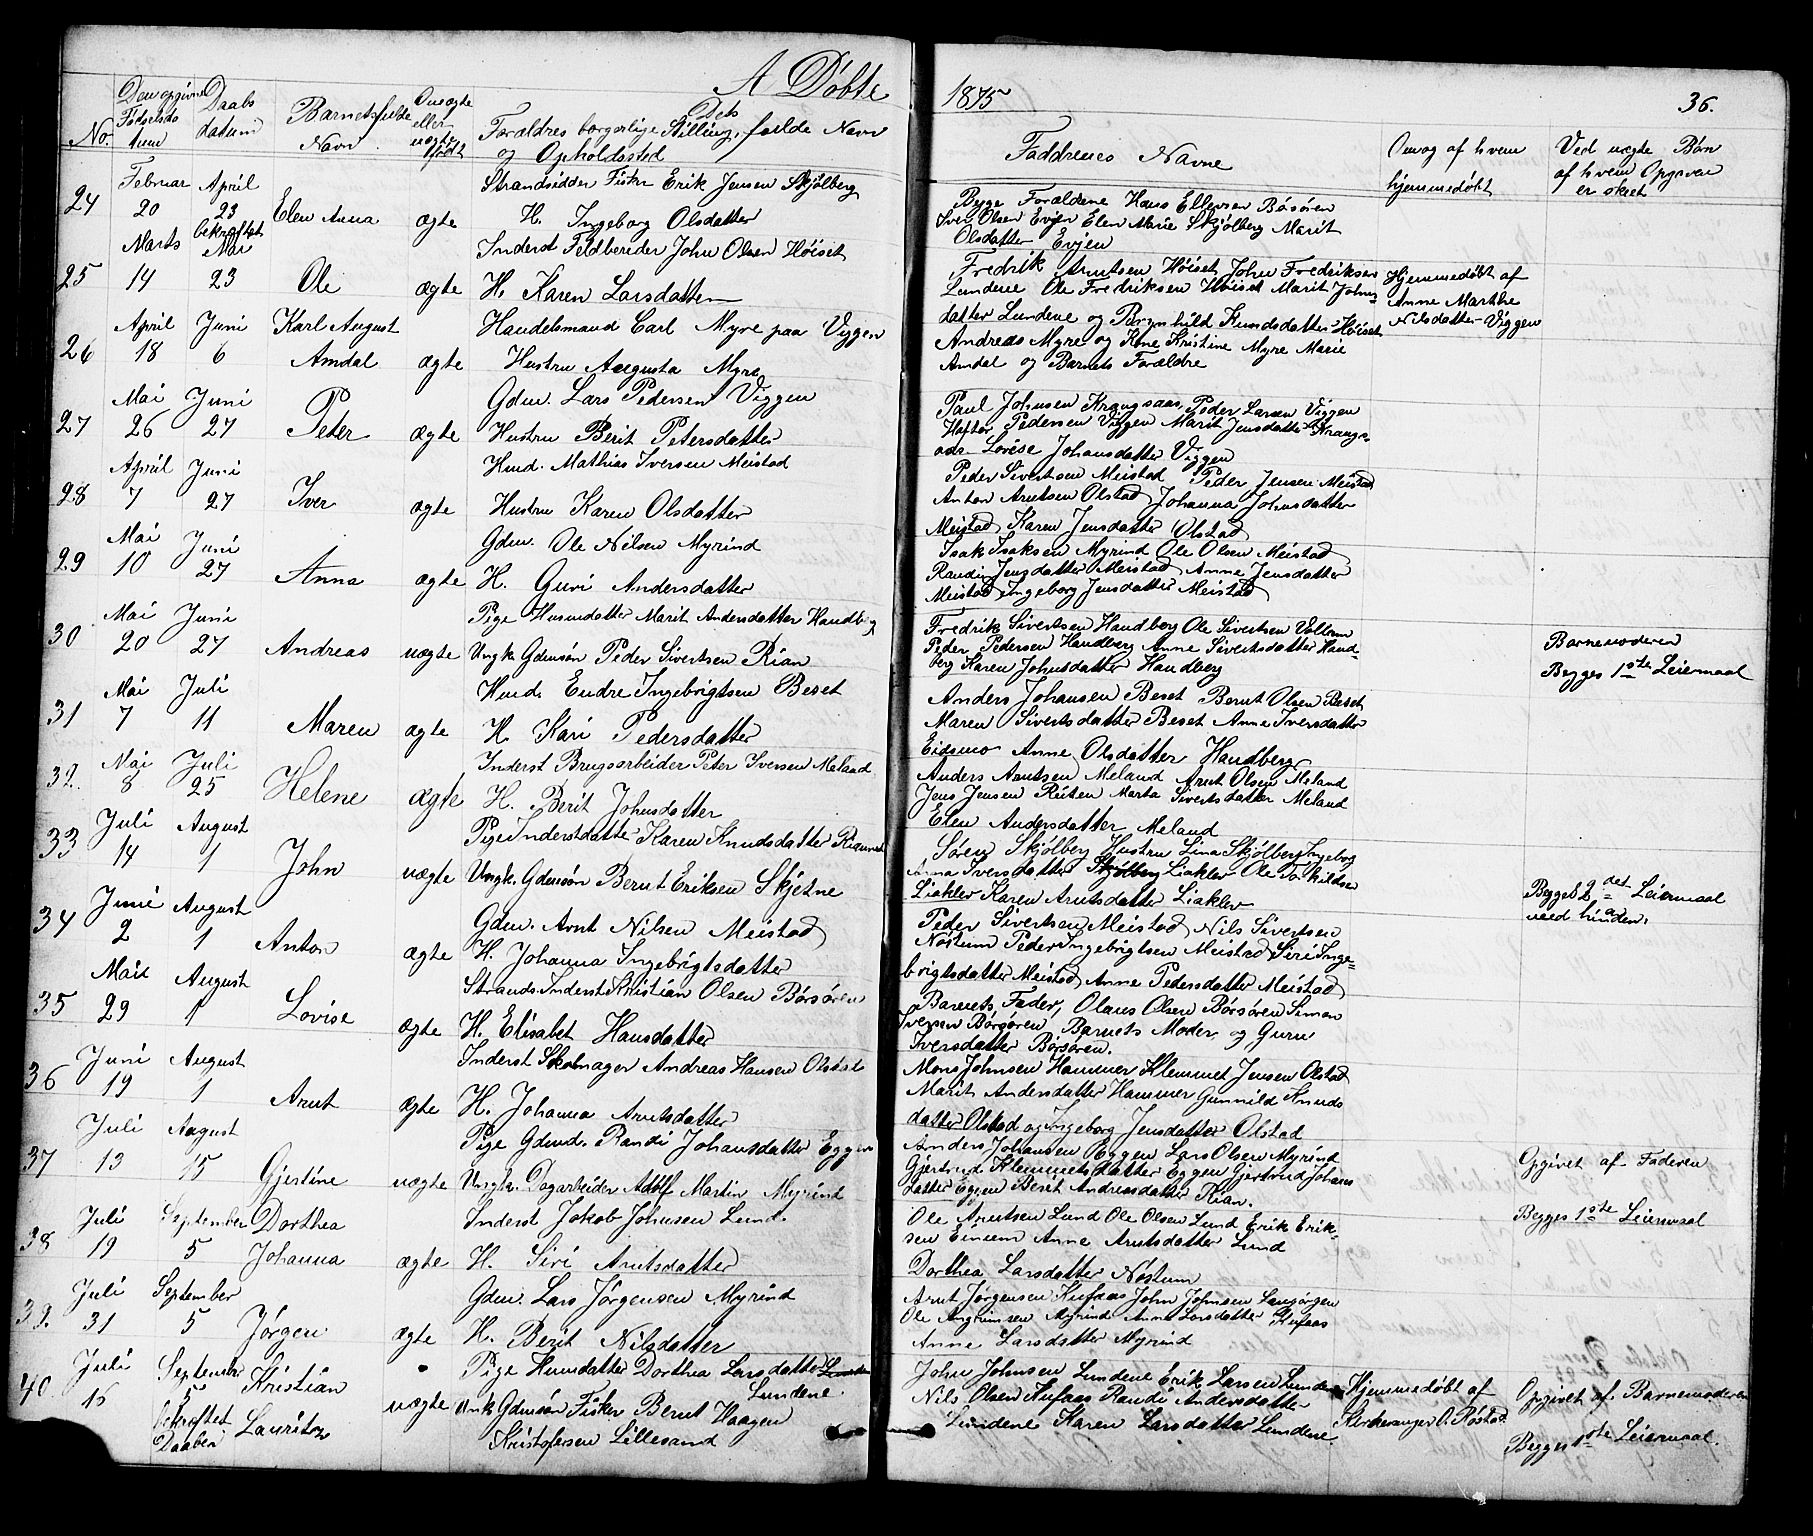 A Døbte 1875 36.
No. Den opgivne Fødselsdatum Daabsdatum Barnets fulde Navn Om ægte eller uægte født Dets Forældres borgerlige Stilling, fulde Navn og Opholdssted Faddrenes Navne Om og af hvem hjemmedøbt Ved uægte Børn af hvem Opgaven er skeet
24 Februar 20 April 23 Elen Anna ægte Strandsidder Fisker Erik Jensen Skjølberg
H. Ingeborg Olsdatter
Begge Forældrene Hans Ellevsen Børsøren
Iver Olsen Evjen Elen Marie Skjølberg Marit
Olsdatter Evjen
25 Marts 14 bekræftet Mai 23 Ole ægte Inderst Feldbereder John Olsen Høiset
H. Karen Larsdatter
Fredrik Arntsen Høiset John Fredriksen
Lundene Ole Fredriksen Høiset Marit Johns
datter Lundene og Brynhild Knudsdatter Høiset
Hjemmedøbt af
Anne Marthe
Nilsdatter Viggen
26 April 18 Juni 6 Karl August Amdal ægte Handelsmand Carl Myre paa Viggen
Hustru Augusta Myre
Andreas Myre og Kone Kristine Myre Marie
Amdal og Barnets Forældre
27 Mai 26 Juni 27 Peter ægte Gdm. Lars Pedersen Viggen
Hustru Berit Petersdatter
Paul Johnsen Krangsaas, Peder Larsen Viggen
Haftor Pedersen Viggen Marit Jensdatter Krangs-
aas Lovise Johansdatter Viggen
28 April 7 Juni 27 Iver ægte Hmd. Mathias Iversen Meistad
Hustru Karen Olsdatter
Peder Sivertsen Meistad Peder Jensen Meistad
Anton Arntsen Olstad Johanna Johnsdatter
Meistad Karen Jensdatter Olstad
29 Mai 10 Juni 27 Anna ægte Gdm. Ole Nilsen Myrind
H. Guri Andersdatter
Isak Isaksen Myrind Ole Olsen Meistad
Randi Jensdatter Meistad Anne Jensdatter
Meistad Ingeborg Jensdatter Meistad
30 Mai 20 Juni 27 Andreas uægte Pige Husmdatter Marit Andersdatter Handberg
Ungk. Gdmsøn Peder Sivertsen Rian
Fredrik Sivertsen Handberg Ole Sivertsen Vollum
Peder Pedersen Handberg Anne Sivertsdatter Hand-
berg Karen Johnsdatter Handberg
Barnemoderen
Begges 1ste Leiermaal
31 Mai 7 Juli 11 Maren ægte Hmd. Endre Ingebrigtsen Beset
H. Kari Pedersdatter
Anders Johansen Beset Bernt Olsen Beset
Maren Sivertsdatter Beset Anne Iversdatter
Eidsmo Anne Olsdatter Handberg
32. Mai 8 Juli 25 Helene ægte Inderst Brugsarbeider Peter Iversen Meland
H. Berit Johnsdatter
Anders Arntsen Meland Arnt Olsen Meland
Jens Jensen Reiten Marta Sivertsdatter Meland
Elen Andersdatter Meland
33 Juli 14 August 1 John uægte Pige Inderstdatter Karen Knudsdatter
Ungk. Gdmsøn Bernt Eriksen Skjetne
Søren Skjølberg Hustru Lina Skjølberg Ingeborg
Anna Iversdatter Skjølberg Liakler Ole
Liakler Karen Arntsdatter Liakler
Begges 2det Leiermaal
med hinanden.
34 Juni 2 August 1 Anton ægte Gdm. Arnt Nilsen Meistad
H. Johanna Ingebrigtsdatter
Peder Sivertsen Meistad Nils Sivertsen
Nøstum Peder Ingebrigtsen Meistad Siri Inge-
brigtsdatter Meistad Anne Pedersdatter Meistad
35 Mai 29 August 1 Lovise ægte Strands. Inderst Kristian Olsen Børsøren
H. Elisabet Hansdatter
Barnets Fader, Olaus Olsen Børsøren Simon
Iversen Børsøren Barnets Moder og Guru
Iversdatter Børsøren.
36 Juni 19 August 1 Arnt ægte Inderst Skomager Andreas Hansen Olstad
H. Johanna Arntsdatter
Mons Johnsen Hammer Klemmet Jensen Olstad
Marit Andersdatter Hammer Gunnild Knuds
datter Olstad og Ingeborg Jensdatter Olstad
37 Juli 13 August 15 Gjertine uægte Pige Gdmd. Randi Johansdatter Eggen
Ungk. Dagarbeider Adolf Martin Myrind
Anders Johansen Eggen Lars Olsen Myrind
Gjertrud Klemmetsdatter Eggen Gjertrud Johans
datter Eggen Berit Andreasdatter Rian.
Opgivet af Faderen
Begges 1ste Leiermaal
38 Juli 19 September 5 Dorthea Johanna ægte Inderst Jakob Johnsen Lund.
H. Siri Arntsdatter
Ole Arntsen Lund Ole Olsen Lund Erik Erik-
sen Anne Arntsdatter Lund
Dorthea Larsdatter Nøstum
39. Juli 31 September 5 Jørgen ægte Gdm. Lars Jørgensen Myrind
H. Berit Nilsdatter
Arnt Jørgensen Hufaas John Johnsen Langørgen
Ole Angrimsen Myrind Anne Larsdatter Hufaas
Anne Larsdatter Myrind
40. Juli 16 September 5 bekræftet Daaben Kristian Lauritz uægte Pige Husmdatter Dorthea Larsdatter
Lundene
Unk. Gdmsøn Fisker Bernt Haagen
Kristofersen Lillesand
John Johnsen Lundene Erik Larsen Lundene
Nils Olsen Hufaas Randi Andersdatter
Lundene Karen Larsdatter Lundene.
Hjemmedøbt af
Kirkesanger O. Røstad
Opgivet af Barnemoderen
Begges 1ste Leiermaal.